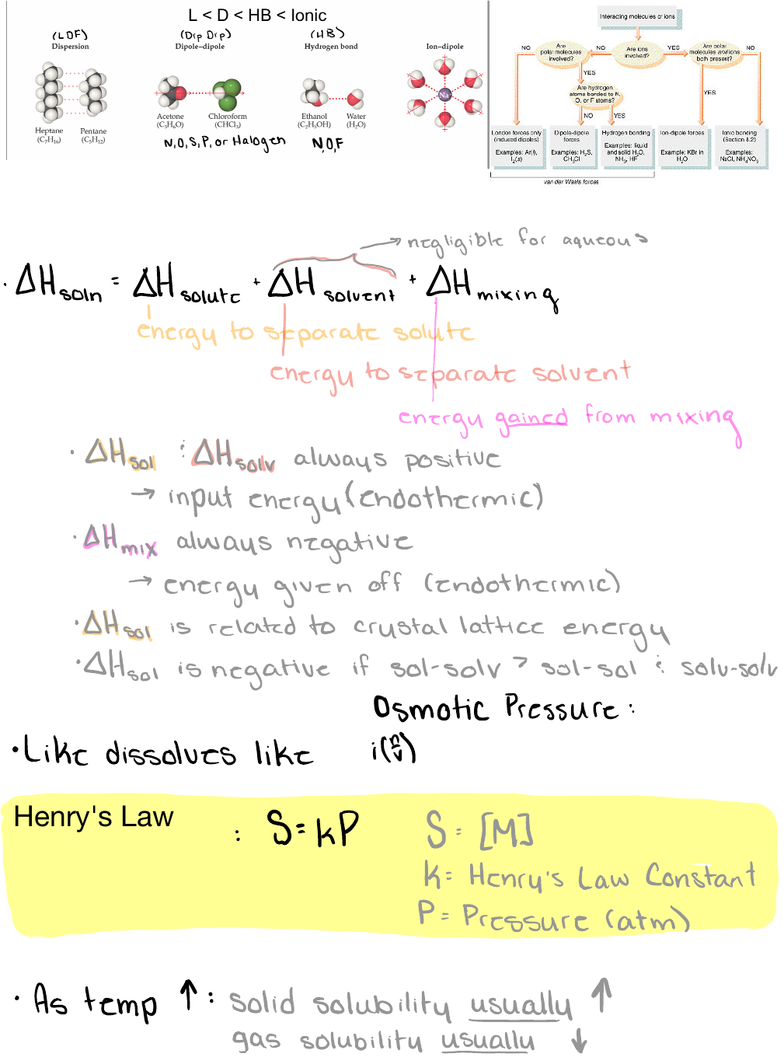 L < D < HB < Ionic
(LDF)
Dispersion
Heptane
(C₇H₁₆)
Pentane
(C₅H₁₂)
(Dip Dip)
Dipole–dipole
Acetone
(C₃H₆O)
Chloroform
(CHCl₃)
N,O,S,P, or Halogen
(HB)
Hydrogen bond
Ethanol
(C₂H₅OH)
Water
(H₂O)
N,O,F
Ion–dipole
Interacting molecules or ions
NO
Are polar molecules involved?
NO
Are ions involved?
YES
Are polar molecules and ions both present?
NO
YES
Are hydrogen atoms bonded to N, O, or F atoms?
YES
NO
YES
London forces only (induced dipoles)
Examples: Ar(l), I₂(s)
Dipole-dipole forces
Examples: H₂S, CH₃Cl
Hydrogen bonding
Examples: liquid and solid H₂O, NH₃, HF
Ion-dipole forces
Example: KBr in H₂O
Ionic bonding (Section 8.2)
Examples: NaCl, NH₄NO₃
van der Waals forces
→ negligible for aqueous
· ΔHsoln = ΔHsolute + ΔHsolvent + ΔHmixing
energy to separate solute
energy to separate solvent
energy gained from mixing
· ΔHsol & ΔHsolv always positive
→ input energy (endothermic)
· ΔHmix always negative
→ energy given off (endothermic)
· ΔHsol is related to crystal lattice energy
· ΔHsol is negative if sol-solv > sol-sol & solv-solv
Osmotic Pressure:
· Like dissolves like
i(n/v)
Henry's Law : S=kP
S = [M]
k= Henry's Law Constant
P= Pressure (atm)
· As temp ↑: solid solubility usually ↑
gas solubility usually ↓